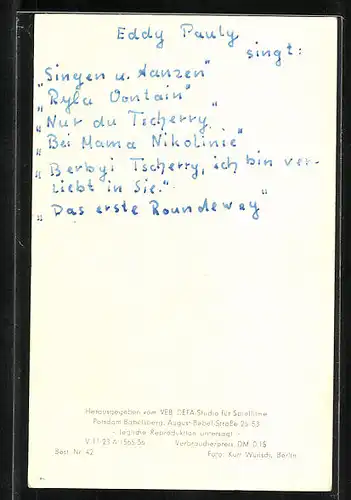 Eddy Pauly
singt:
"Singen u. Tanzen"
"Ryla Vontain"
"Nur du Tscherry"
"Bei Mama Nikolinie"
"Berbyi Tscherry, ich bin ver-
liebt in Sie."
"Das erste Roundeway"
Herausgegeben vom VEB DEFA-Studio für Spielfilme
Potsdam-Babelsberg, August-Bebel-Straße 26-53
- Jegliche Reproduktion untersagt -
V 11-23 A 1565/56 Verbraucherpreis DM 0,15
Best. Nr. 42 Foto: Kurt Wunsch, Berlin